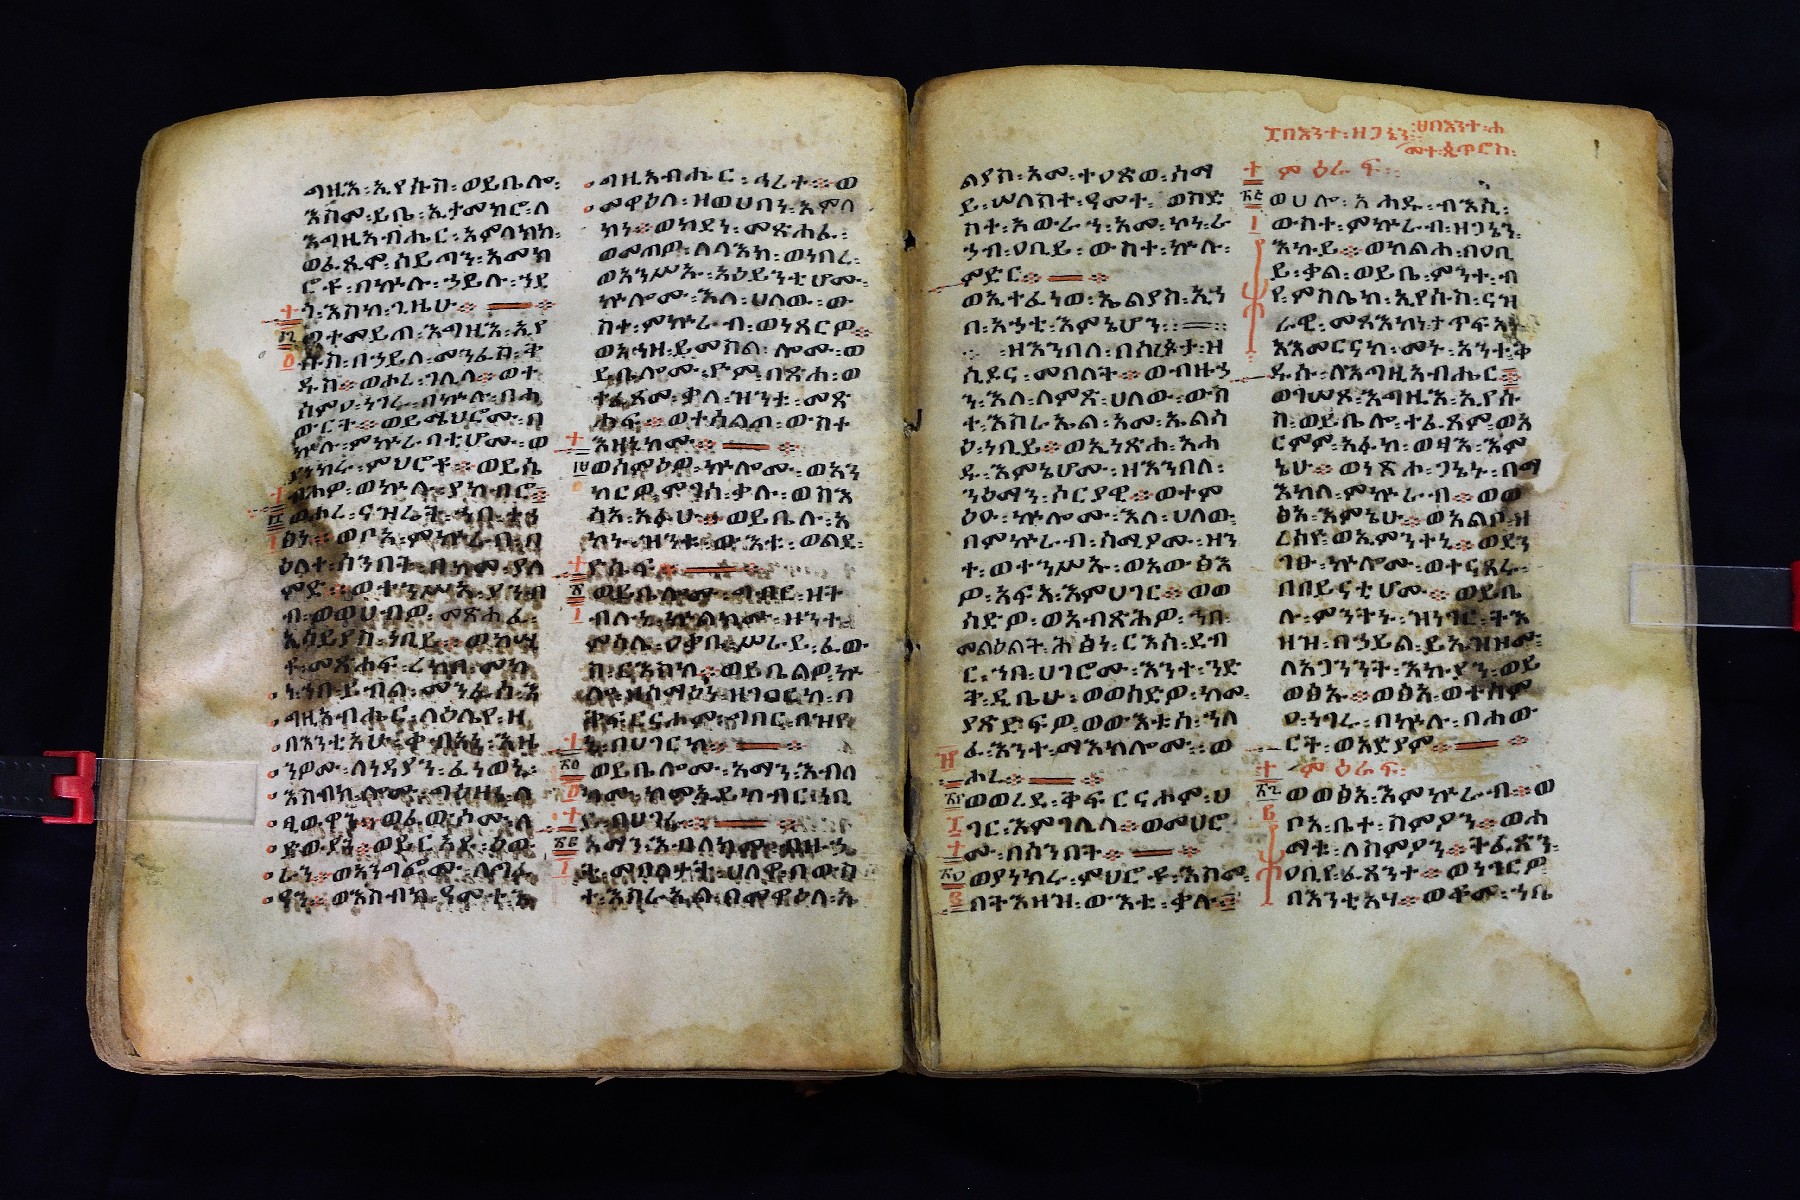 ግዚእ፡ ኢየሱስ፡ ወይቤሎ፡
እስመ፡ ይቤ፡ ኢታመክሮ፡ ለ
እግዚአብሔር፡ አምላክከ፡
ወፈጺሞ፡ ሰይጣን፡ አመክ
ሮቶ፡ በኵሉ፡ ኃይሉ፡ ኀደ
ጎ፡ እስከ፡ ጊዜሁ።
ወተመይጠ፡ እግዚእ፡ ኢየ
ሱስ፡ በኃይለ፡ መንፈስ፡ ቅ
ዱስ። ወሖረ፡ ገሊላ። ወተ
ሰምዐ፡ ነገሩ፡ በኵሉ፡ በሓ
ውርት። ወይሜህሮሙ፡ በ
ኵሉ፡ ምኵራባቲሆሙ፡ ወ
ያነክሩ፡ ምህሮቶ። ወይሴ
ብሖ፡ ወኵሉ፡ ያከብሮ።
ወሖረ፡ ናዝሬት፡ ኀበ፡ ተሐ
ፅነ። ወቦአ፡ ምኵራበ፡ በ
ዕለተ፡ ሰንበት፡ በከመ፡ ያለ
ምድ። ወተንሥአ፡ ያንብ
ብ፡ ወወሀብዎ፡ መጽሐፈ፡
ኢሳይያስ፡ ነቢይ። ወከሢ
ቶ፡ መጽሐፈ፡ ረከበ፡ መካ
ነ፡ ኀበ፡ ይብል፡ መንፈሰ፡ እ
ግዚአብሔር፡ ላዕሌየ፡ ዘ
በእንቲአሁ፡ ቀብአኒ፡ እዜ
ንዎሙ፡ ለነዳያን፡ ፈነወኒ፡
እስብክ፡ ሎሙ፡ ግዕዛነ፡ ለ
ፂዉዋን። ወፈውሶሙ፡ ለ
ድዉያን። ወይርአዩ፡ ዕው
ራን። ወአንግፎሙ፡ ለግፉ
ዓን። ወእስብክ፡ ዓመተ፡ እ
ግዚአብሔር፡ ኅሪተ። ወ
መዋዕለ፡ ዘወሀበነ፡ አምላ
ክነ። ወከደነ፡ መጽሐፈ፡
ወመጠዎ፡ ለላእክ፡ ወነበረ፡
ወአንሥኡ፡ አዕይንቲሆሙ፡
ኵሎሙ፡ እለ፡ ሀለው፡ ው
ስተ፡ ምኵራብ፡ ወነጸርዎ።
ወአኀዘ፡ ይመስል፡ ሎሙ፡ ወ
ይቤሎሙ፡ ዮም፡ በጽሐ፡ ወ
ተፈጸመ፡ ቃለ፡ ዝንቱ፡ መጽ
ሐፍ። ወተሰልጠ፡ ውስተ
እዘኒክሙ።
ወስምዕዎ፡ ኵሎሙ፡ ወአን
ከርዎ፡ ሞገሰ፡ ቃሉ፡ ወበእ
ሰአ፡ አፉሁ። ወይቤሉ፡ አ
ኮኑ፡ ዝንቱ፡ ውእቱ፡ ወልደ፡
ዮሴፍ።
ወይቤሎሙ፡ ግብር፡ ዘት
ብሉኒ፡ ኵልክሙ፡ ዘንተ፡
ምዕሉ፡ ዐቃቤ፡ ሥራይ፡ ፈው
ስ፡ ርእስከ። ወይቤልዎ፡ ኵ
ሎ፡ ዘሰማዕነ፡ ዘገበርከ፡ በ
ቅፍርናሖም፡ ግበር፡ በዝየ
ኒ፡ በሀገርከ።
ወይቤሎሙ፡ አማን፡ እብለ
ክሙ፡ ከመ፡ ኢይከብር፡ ነቢ
ይ፡ በሀገሩ።
አማን፡ እብለክሙ፡ ብዙኃ
ት፡ መበለታት፡ ሀለዋ፡ በውስ
ተ፡ እስራኤል፡ በመዋዕለ፡ ኤ
ልያስ፡ አመ፡ ተዐጽወ፡ ሰማ
ይ፡ ሠለስተ፡ ዓመተ፡ ወስድ
ስተ፡ አውራኀ፡ አመ፡ ኮነ፡ ረ
ኃብ፡ ዐቢይ፡ ውስተ፡ ኵሉ፡
ምድር።
ወኢተፈነወ፡ ኤልያስ፡ ኀበ፡
አሐቲ፡ እምኔሆን።
ዘእንበለ፡ በሰራጵታ፡ ዘ
ሲዶና፡ መበለት። ወብዙኃ
ን፡ እለ፡ ለምጽ፡ ሀለው፡ ውስ
ተ፡ እስራኤል፡ አመ፡ ኤልሳ
ዕ፡ ነቢይ። ወኢነጽሐ፡ አሐ
ዱ፡ እምኔሆሙ፡ ዘእንበለ፡
ንዕማን፡ ሶርያዊ። ወተም
ዕዑ፡ ኵሎሙ፡ እለ፡ ሀለው፡
በምኵራብ፡ ሰሚዖሙ፡ ዘን
ተ፡ ወተንሥኡ፡ ወአውፅእ
ዎ፡ አፍአ፡ እምሀገር፡ ወወ
ሰድዎ፡ ወአብጽሕዎ፡ ኀበ፡
መልዕልት፡ ሕፅነ፡ ርእሰ፡ ደብ
ር፡ ኀበ፡ ሀገሮሙ፡ እንተ፡ ንድ
ቅት፡ ዲቤሁ፡ ወወሰድዎ፡ ከመ፡
ያጽድፍዎ፡ ወውእቱሰ፡ ኀለ
ፈ፡ እንተ፡ ማእከሎሙ፡ ወ
ሖረ።
ወወረደ፡ ቅፍርናሖም፡ ሀ
ገር፡ እምገሊላ። ወመሀሮ
ሙ፡ በሰንበት።
ወያነክሩ፡ ምህሮቶ፡ እስመ፡
በትእዛዝ፡ ውእቱ፡ ቃሉ።
፲በእንተ፡ ዘጋኔን፡ ፱በእንተ፡ ሐ
ማተ፡ ጴጥሮስ፡
ምዕራፍ፡
ወሀሎ፡ አሐዱ፡ ብእሲ፡
ውስተ፡ ምኵራብ፡ ዘጋኔን፡
እኩይ። ወከልሐ፡ በዐቢ
ይ፡ ቃል፡ ወይቤ፡ ምንተ፡ ብ
የ፡ ምስሌከ፡ ኢየሱስ፡ ናዝ
ራዊ፡ መጻእከኑ፡ ታጥፍአነ፡
አአምርናከ፡ መኑ፡ አንተ፡ ቅ
ዱሱ፡ ለእግዚአብሔር።
ወገሠጾ፡ እግዚእ፡ ኢየሱ
ስ፡ ወይቤሎ፡ ተፈጸም፡ ወአ
ርምም፡ አፉከ፡ ወፃእ፡ እም
ኔሁ። ወነጽሖ፡ ጋኔኑ፡ በማ
እከለ፡ ምኵራብ። ወወ
ፅአ፡ እምኔሁ። ወአልቦ፡ ዘ
ረሰዮ፡ ወኢምንተኒ። ወደን
ገፁ፡ ኵሎሙ፡ ወተናጸሩ፡
በበይናቲሆሙ። ወይቤ
ሉ፡ ምንትኑ፡ ዝነገር፡ ትእ
ዛዝ፡ በኃይል፡ ይኤዝዞሙ፡
ለአጋንንት፡ እኩያን፡ ወይ
ወፅኡ። ወፅአ፡ ወተሰም
ዐ፡ ነገሩ፡ በኵሉ፡ በሐው
ርት፡ ወአድያም።
ምዕራፍ፡
ወወፅአ፡ እምኵራብ። ወ
ቦአ፡ ቤተ፡ ስምዖን። ወሐ
ማቱ፡ ለስምዖን። ትፈጽን፡
ዐቢየ፡ ፈጸንተ። ወነገርዎ
በእንቲአሃ። ወቆመ፡ ኀቤ